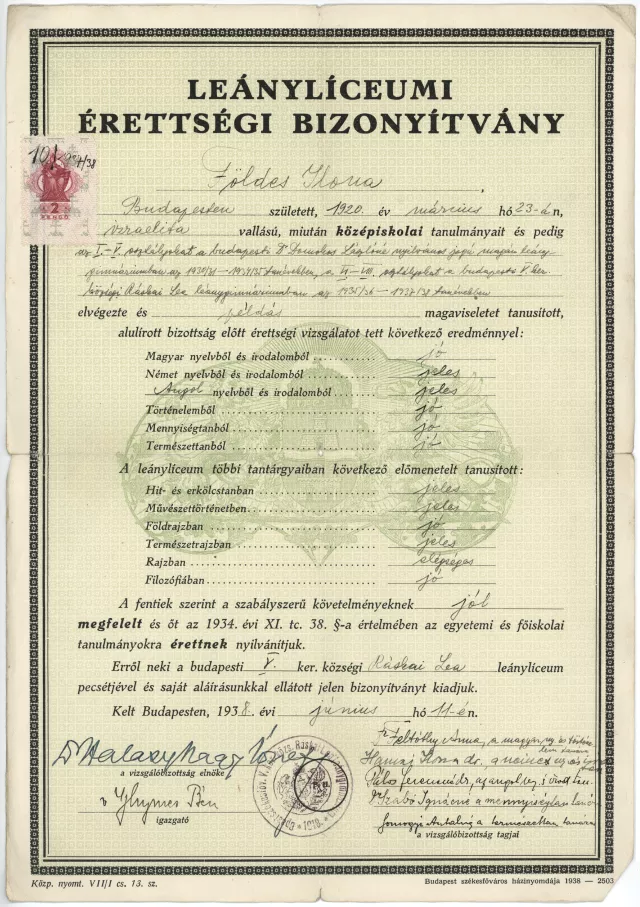 LEÁNYLÍCEUMI
ÉRETTSÉGI BIZONYÍTVÁNY
10/
2
PENGŐ
Földes Ilona
Budapesten született, 1920. év március hó 23-án,
izraelita vallású, miután középiskolai tanulmányait és pedig
az I.-V. osztályokat a budapesti Dr Domokos Lászlóné nyilvános jogú magán leány
gimnáziumban az 1930/31 - 1934/35 tanévekben, a VI-VIII. osztályokat a budapesti V. ker.
községi Ráskai Lea leánygimnáziumban az 1935/36 - 1937/38 tanévekben
elvégezte és példás magaviseletet tanusított,
alulírott bizottság előtt érettségi vizsgálatot tett következő eredménnyel:
Magyar nyelvből és irodalomból jó
Német nyelvből és irodalomból jeles
Angol nyelvből és irodalomból jeles
Történelemből jó
Mennyiségtanból jó
Természettanból jó
A leánylíceum többi tantárgyaiban következő előmenetelt tanusított:
Hit- és erkölcstanban jeles
Művészettörténetben jeles
Földrajzban jó
Természetrajzban jeles
Rajzban elégséges
Filozófiában jó
A fentiek szerint a szabályszerű követelményeknek jól
megfelelt és őt az 1934. évi XI. tc. 38. §-a értelmében az egyetemi és főiskolai
tanulmányokra érettnek nyilvánítjuk.
Erről neki a budapesti V. ker. községi Ráskai Lea leánylíceum
pecsétjével és saját aláírásunkkal ellátott jelen bizonyítványt kiadjuk.
Kelt Budapesten, 1938. évi június hó 11-én.
Anna, a magyar
Dr Halasy Nagy József
a vizsgálóbizottság elnöke
Hamaj Ilona dr, a német
Pálos Ferencné dr, az angol
Szabó Ignácné a mennyiségtan tanára
igazgató
Somogyi Antalné a természettan tanára
a vizsgálóbizottság tagjai
1918
Közp. nyomt. VII/I cs. 13. sz.
Budapest székesfőváros házinyomdája 1938 — 2503